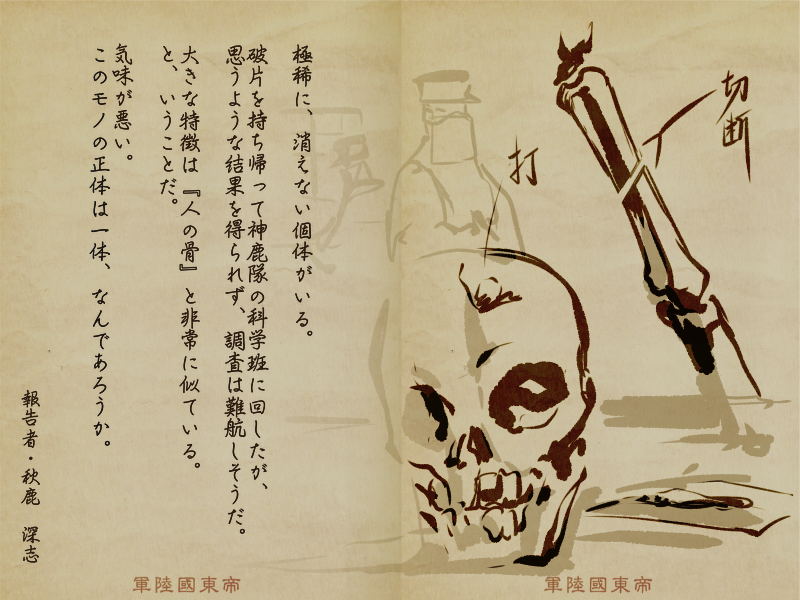 切断
打
極稀に、消えない個体がいる。
破片を持ち帰って神鹿隊の科学班に回したが、
思うような結果を得られず、調査は難航しそうだ。
大きな特徴は『人の骨』と非常に似ている。
と、いうことだ。
気味が悪い。
このモノの正体は一体、なんであろうか。
報告者・秋鹿 深志
軍陸國東帝
軍陸國東帝